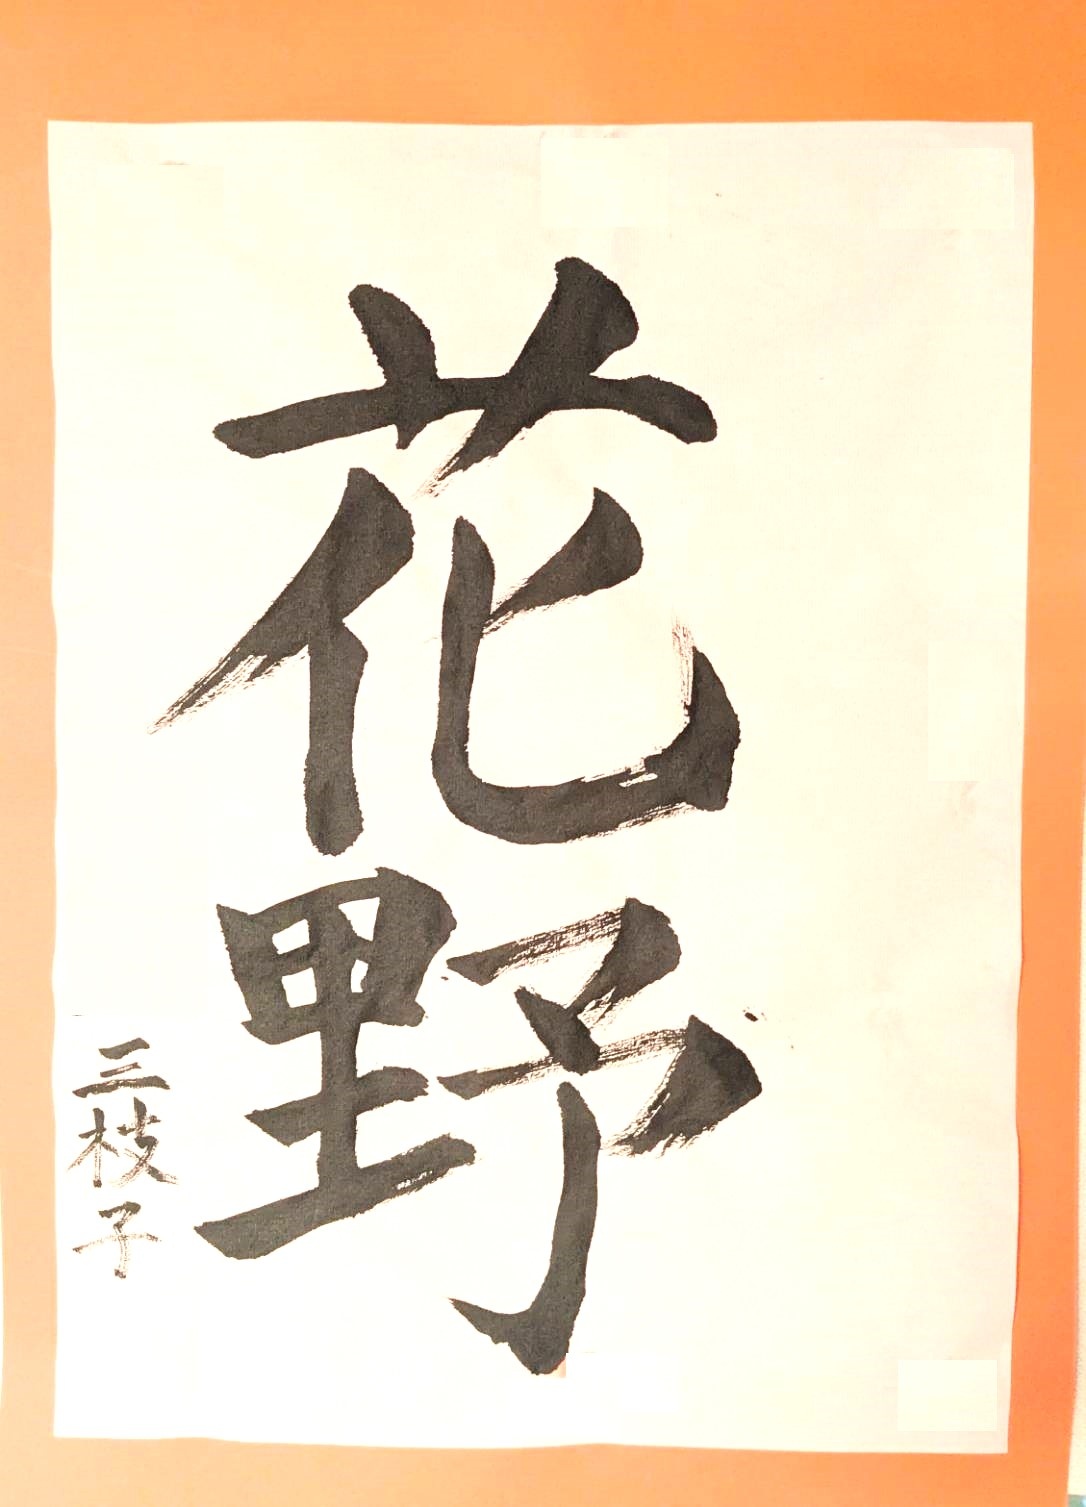 花野
三枝子